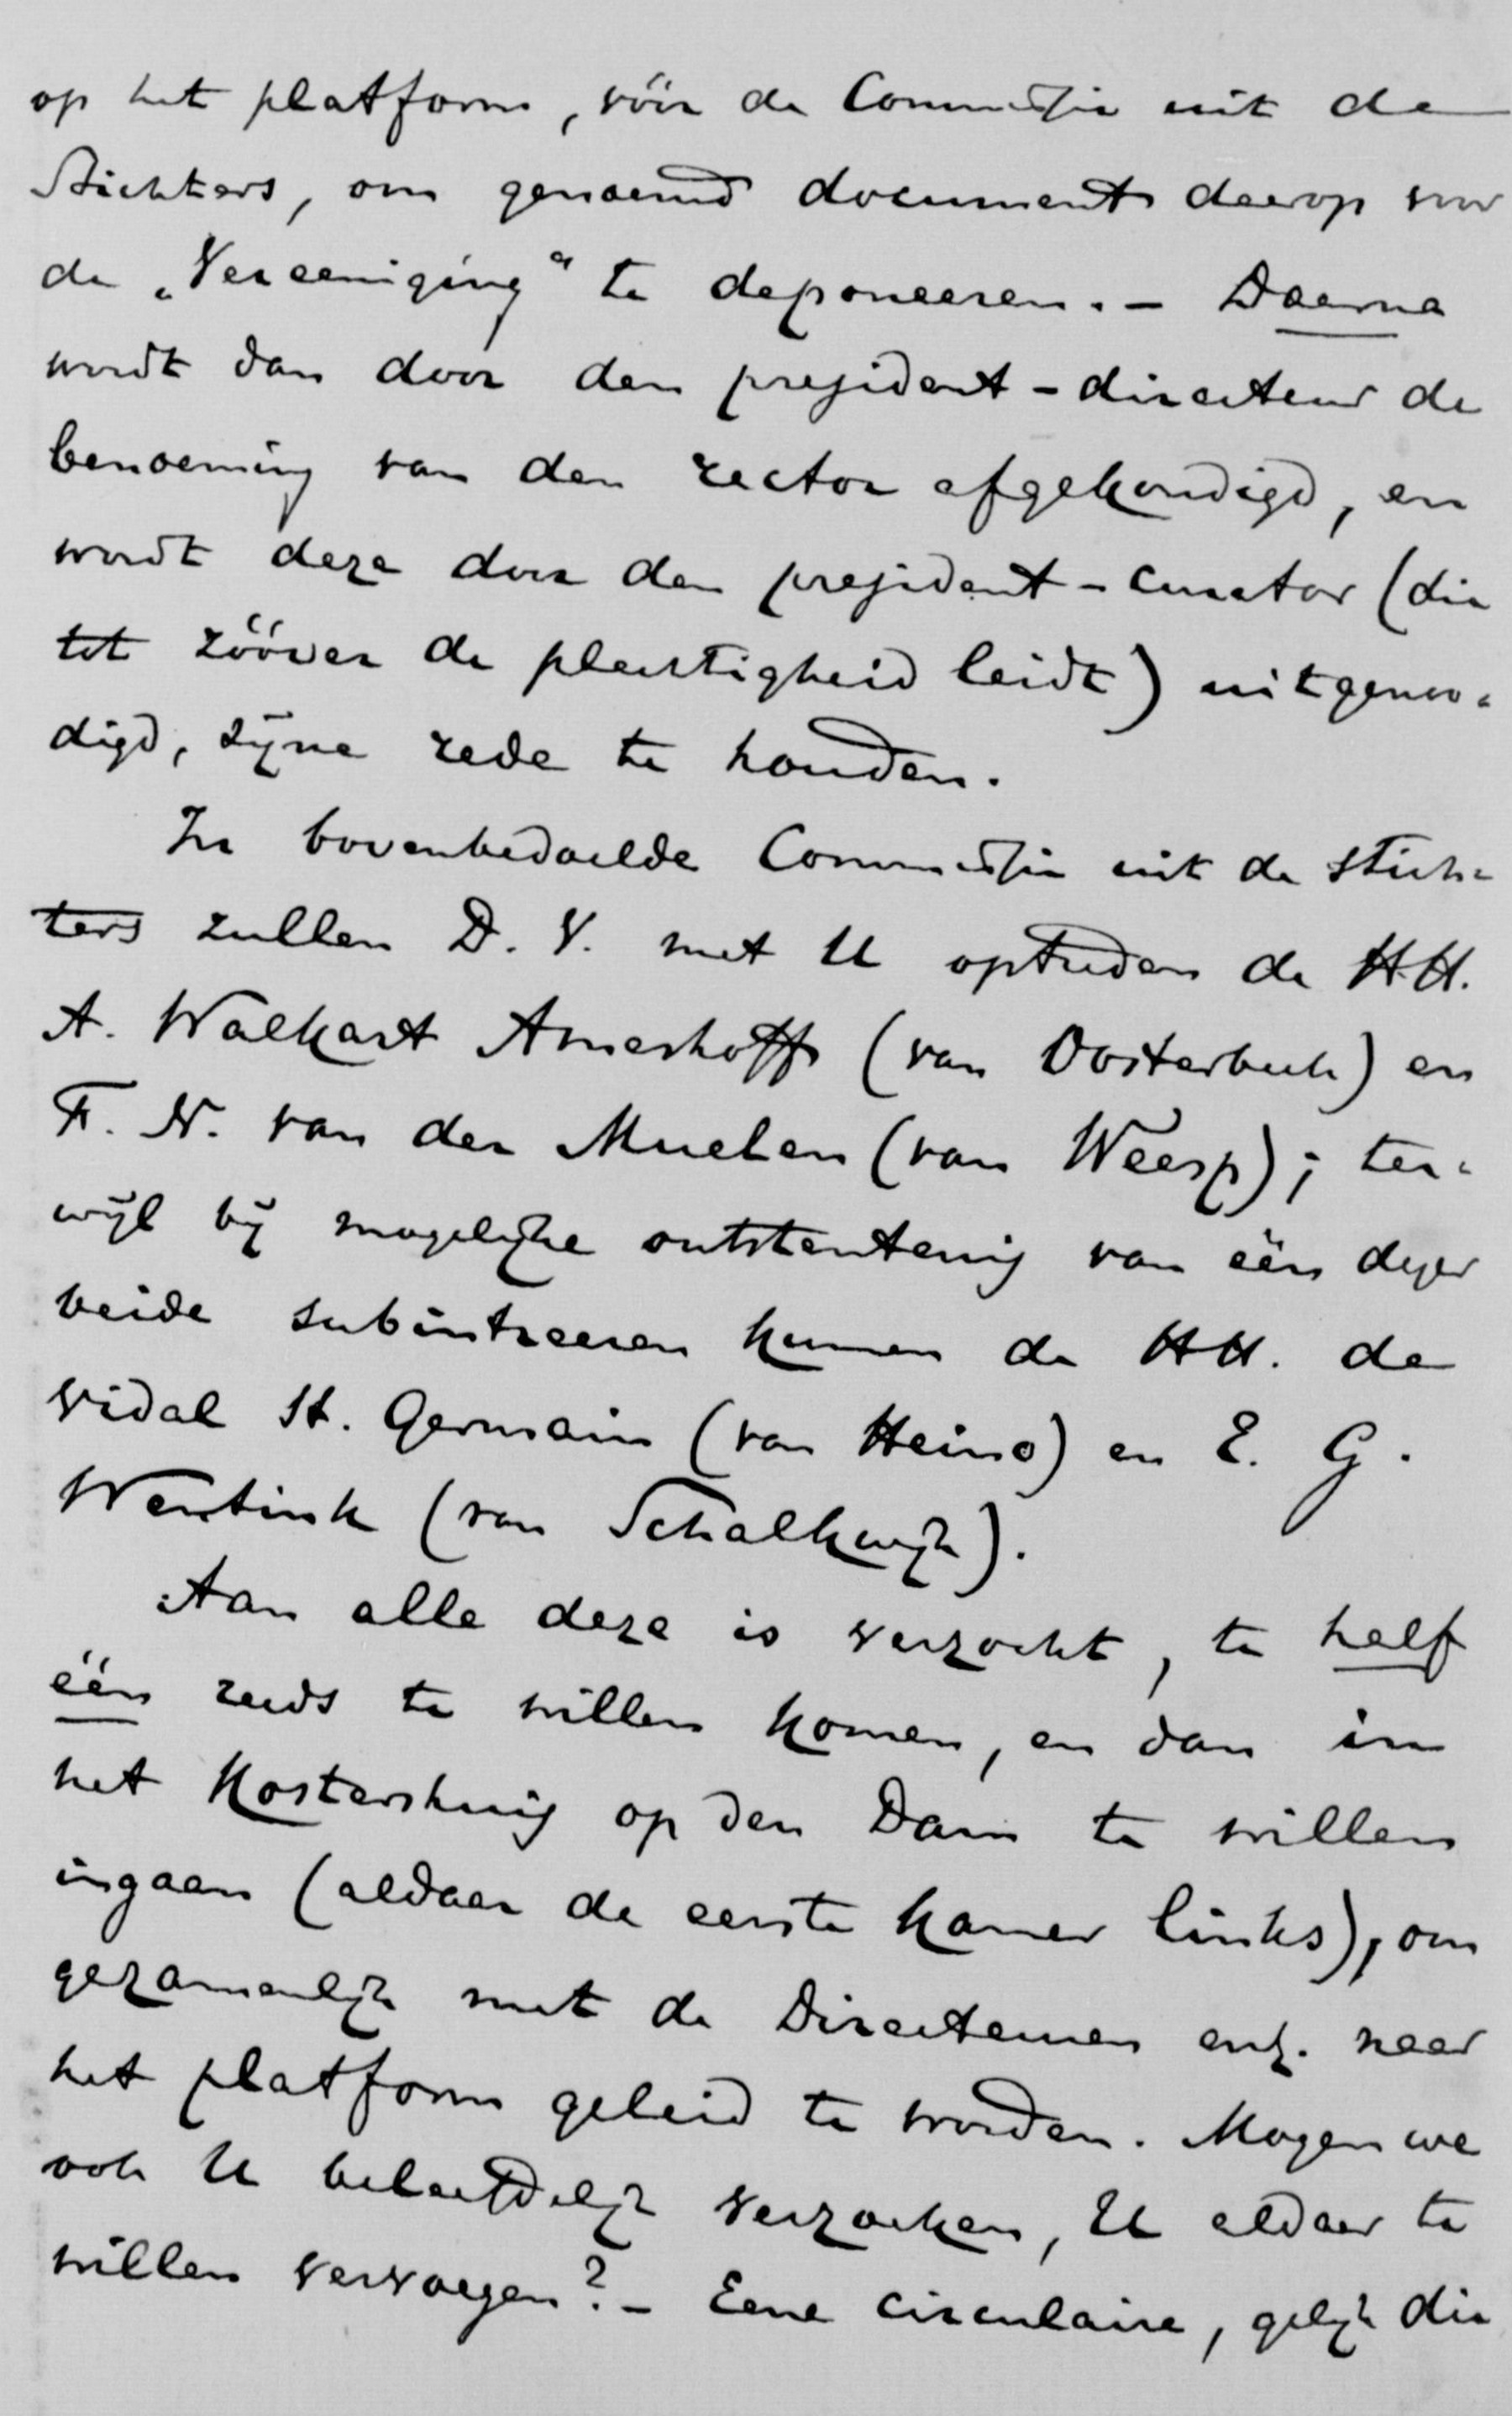 op het platform, vóór de Commissie uit de
Stichters, om genoemd document daarop voor
de „Vereeniging" te deponeeren. – Daarna
wordt dan door den president-directeur de
benoeming van den rector afgekondigd, en
wordt deze door den president-curator (die
tot zóóver de plechtigheid leidt) uitgenoo-
digd, zijne rede te houden.
In bovenbedoelde Commissie uit de stich-
ters zullen D. V. met U optreden de HH.
A. Walkart Ameshoff (van Oosterbeek) en
F. N. van der Muelen (van Weesp); ter-
wijl bij mogelijke ontstentenis van één dezer
beide subintreeren kunnen de HH. de
Vidal St. Germain (van Heino) en E. G.
Wentink (van Schalkwijk).
Aan alle deze is verzocht, te half
één reeds te willen komen, en dan in
het Kostershuis op den Dam te willen
ingaan (aldaar de eerste kamer links), om
gezamenlijk met de Directeuren enz. naar
het platform geleid te worden. Mogen we
ook U beleefdelijk verzoeken, U aldaar te
willen vervoegen? – Eene circulaire, gelijk die